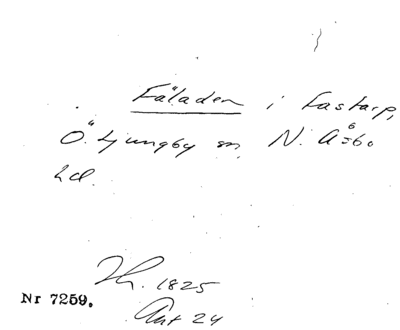 Fäladen i Fastarp,
Ö. Ljungby sn, N. Åsbo
hd.
Th. 1825
Ant 24
Nr 7259.